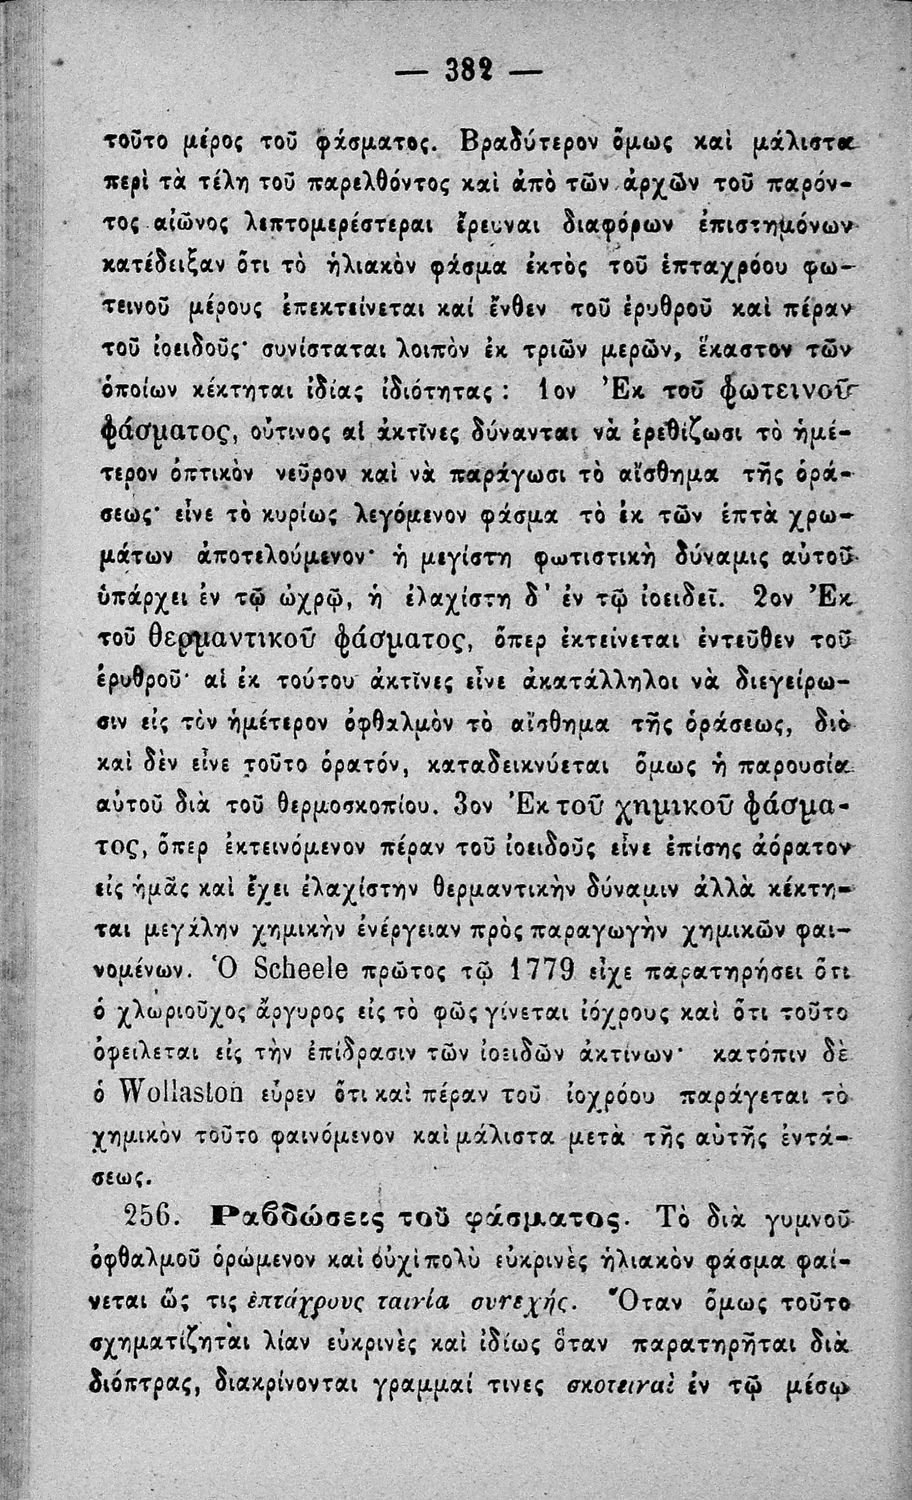 — 382 —
τοῦτο μέρος τοῦ φάσματος. Βραδύτερον ὅμως καὶ μάλιστα
περὶ τὰ τέλη τοῦ παρελθόντος καὶ ἀπὸ τῶν ἀρχῶν τοῦ παρόν-
τος αἰῶνος λεπτομερέστεραι ἔρευναι διαφόρων ἐπιστημόνων
κατέδειξαν ὅτι τὸ ἡλιακὸν φάσμα ἐκτὸς τοῦ ἑπταχρόου φω-
τεινοῦ μέρους ἐπεκτείνεται καί ἔνθεν τοῦ ἐρυθροῦ καὶ πέραν
τοῦ ἰοειδοῦς· συνίσταται λοιπὸν ἐκ τριῶν μερῶν, ἕκαστον τῶν
ὁποίων κέκτηται ἰδίας ἰδιότητας : 1ον Ἐκ τοῦ φωτεινοῦ
φάσματος, οὗτινος αἱ ἀκτῖνες δύνανται νὰ ἐρεθίζωσι τὸ ἡμέ-
τερον ὀπτικὸν νεῦρον καὶ νὰ παράγωσι τὸ αἴσθημα τῆς ὁρά-
σεως· εἶνε τὸ κυρίως λεγόμενον φάσμα τὸ ἐκ τῶν ἑπτὰ χρω-
μάτων ἀποτελούμενον· ἡ μεγίστη φωτιστικὴ δύναμις αὐτοῦ
ὑπάρχει ἐν τῷ ὠχρῷ, ἡ ἐλαχίστη δ' ἐν τῷ ἰοειδεῖ. 2ον Ἐκ
τοῦ θερμαντικοῦ φάσματος, ὅπερ ἐκτείνεται ἐντεῦθεν τοῦ
ἐρυθροῦ· αἱ ἐκ τούτου ἀκτῖνες εἶνε ἀκατάλληλοι νὰ διεγείρω-
σιν εἰς τὸν ἡμέτερον ὀφθαλμὸν τὸ αἴσθημα τῆς ὁράσεως, διὸ
καὶ δὲν εἶνε τοῦτο ὁρατόν, καταδεικνύεται ὅμως ἡ παρουσία
αὐτοῦ διὰ τοῦ θερμοσκοπίου. 3ον Ἐκ τοῦ χημικοῦ φάσμα-
τος, ὅπερ ἐκτεινόμενον πέραν τοῦ ἰοειδοῦς εἶνε ἐπίσης ἀόρατον
εἰς ἡμᾶς καὶ ἔχει ἐλαχίστην θερμαντικὴν δύναμιν ἀλλὰ κέκτη-
ται μεγάλην χημικὴν ἐνέργειαν πρὸς παραγωγὴν χημικῶν φαι-
νομένων. Ὁ Scheele πρῶτος τῷ 1779 εἶχε παρατηρήσει ὅτι
ὁ χλωριοῦχος ἄργυρος εἰς τὸ φῶς γίνεται ἰόχρους καὶ ὅτι τοῦτο
ὀφείλεται εἰς τὴν ἐπίδρασιν τῶν ἰοειδῶν ἀκτίνων· κατόπιν δὲ
ὁ Wollaston εὗρεν ὅτι καὶ πέραν τοῦ ἰοχρόου παράγεται τὸ
χημικὸν τοῦτο φαινόμενον καὶ μάλιστα μετὰ τῆς αὐτῆς ἐντά-
σεως.
256. Ραβδώσεις τοῦ φάσματος. Τὸ διὰ γυμνοῦ
ὀφθαλμοῦ ὁρώμενον καὶ οὐχὶ πολὺ εὐκρινὲς ἡλιακὸν φάσμα φαί-
νεται ὥς τις ἑπτάχρους ταινία συνεχής. Ὅταν ὅμως τοῦτο
σχηματίζηται λίαν εὐκρινὲς καὶ ἰδίως ὅταν παρατηρῆται διὰ
διόπτρας, διακρίνονται γραμμαί τινες σκοτειναὶ ἐν τῷ μέσῳ